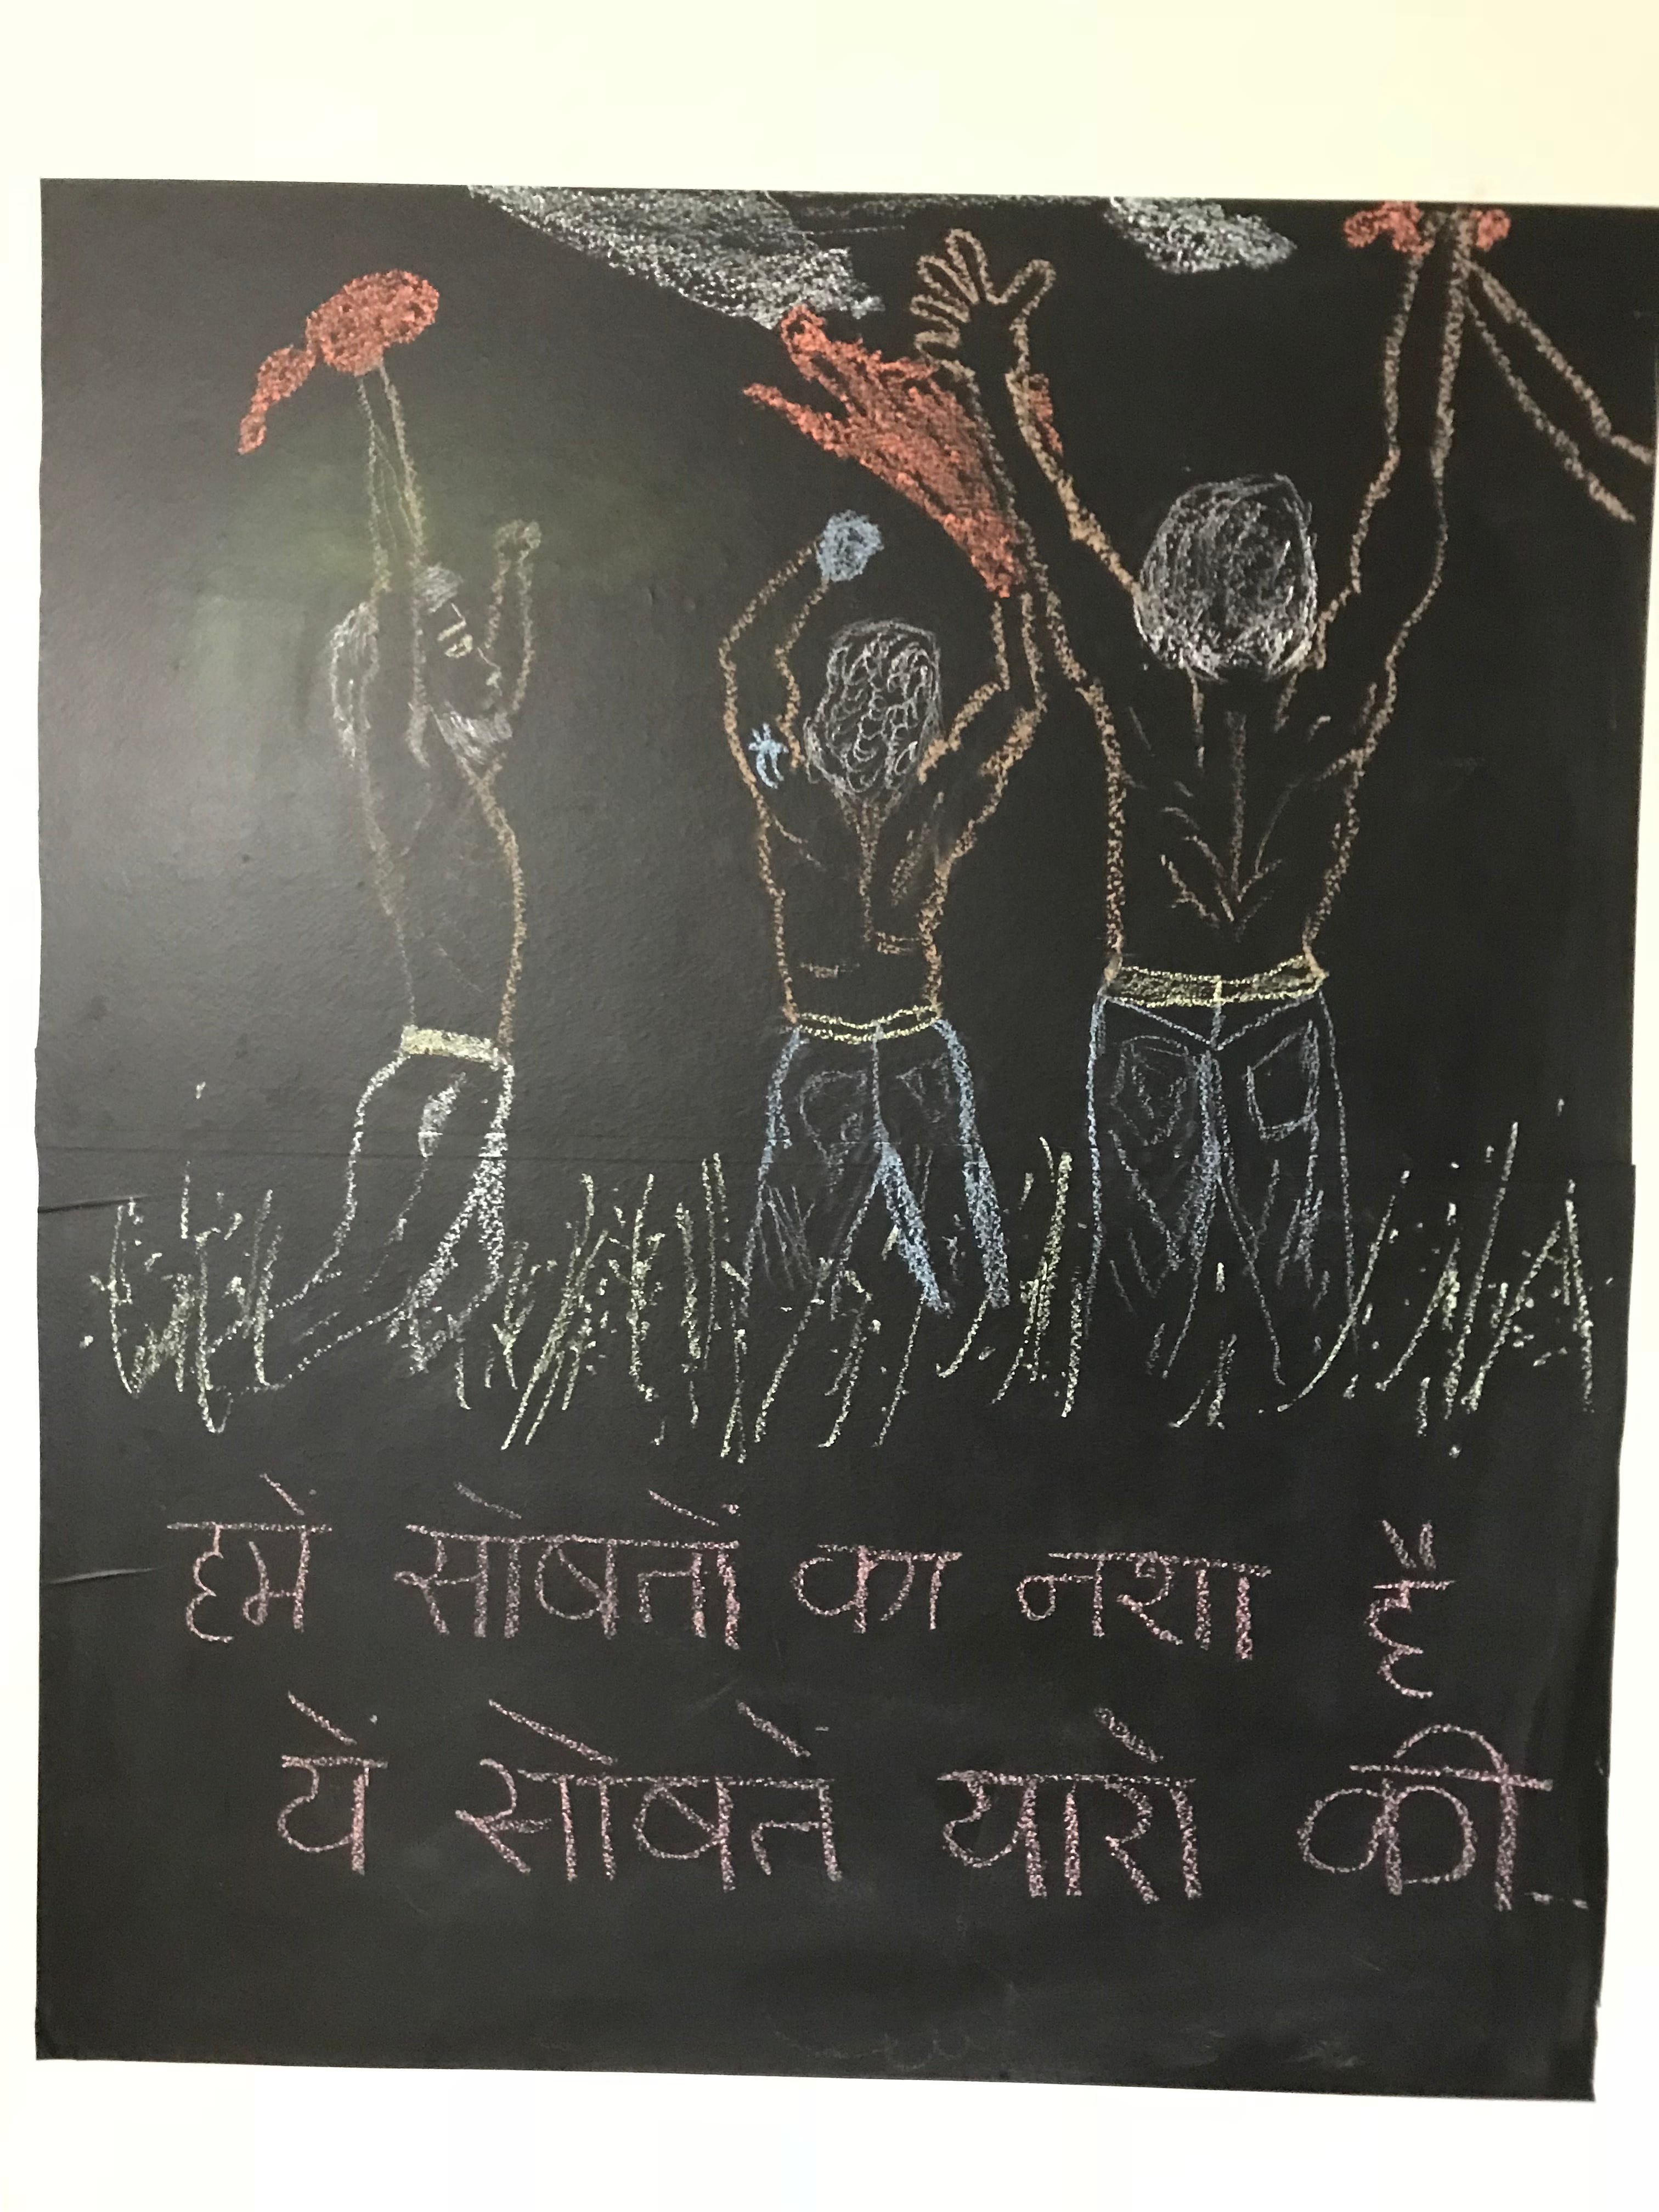 हमे सोबतों का नशा है
ये सोबतें यारो की